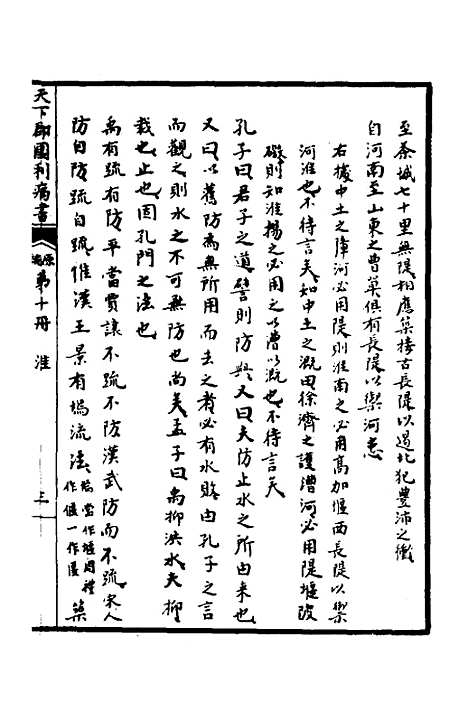 至茶城七十里無隄相應築接古長隄以遏北犯豐沛之衝
自河南至山東之曹莫俱有長隄以禦河患
右據中土之障河必用隄則淮南之必用高加堰西長隄以禦
河淮也不待言矣如中土之溉田徐濟之護漕河必用隄堰陂
則知淮揚之必用之以漕以溉也不待言矣
孔子曰君子之道譬則防與又曰夫防止水之所由來也
又曰以舊防為無所用而去之者必有水敗由孔子之言
而觀之則水之不可無防也尚矣孟子曰禹抑洪水夫抑
裁也止也固孔門之法也
禹有疏有防平當賈讓不疏不防漢武防而不疏宋人
防自防疏自疏惟漢王景有堨流法堨當作堰周禮作偃一作匽築
天下郡國利病書
原編
第十冊
淮
三